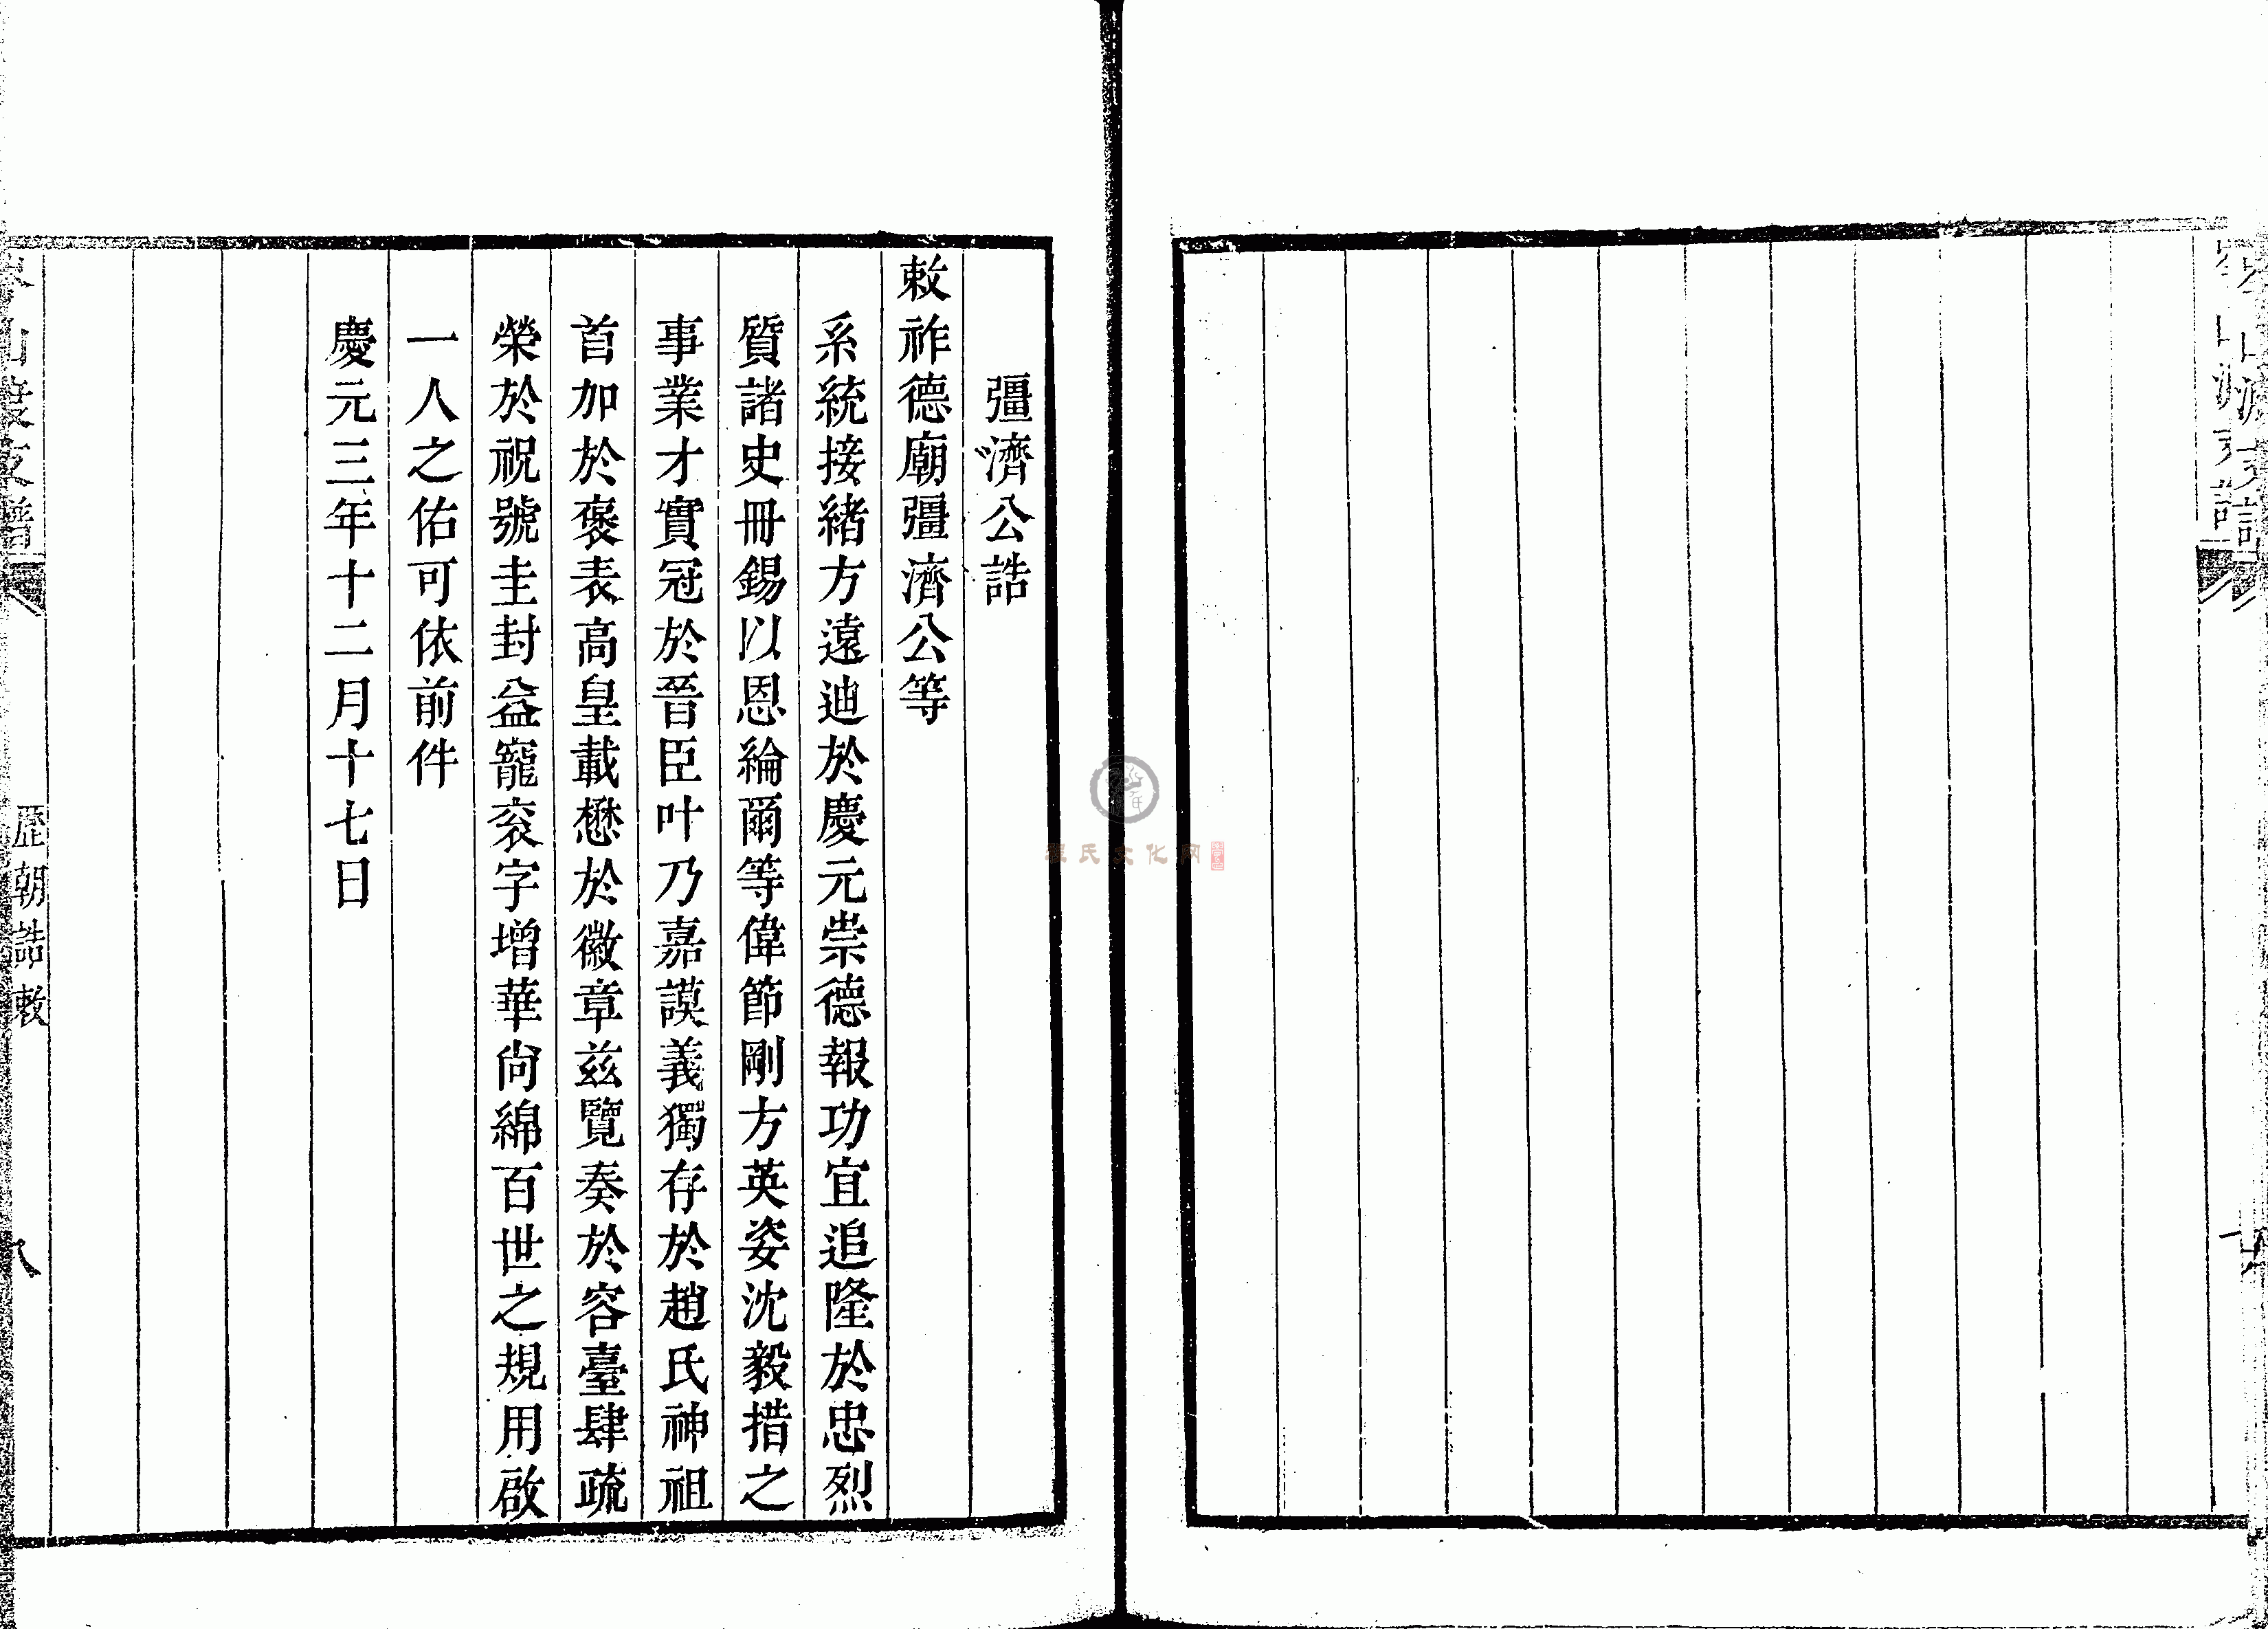 彊濟公誥
敕祚德廟彊濟公等
系統接緒方遠迪於慶元崇德報功宜追隆於忠烈
質諸史冊錫以恩綸爾等偉節剛方英姿沈毅措之
事業才實冠於晉臣叶乃嘉謨義獨存於趙氏神祖
首加於褒表高皇載懋於徽章兹覽奏於容臺肆疏
榮於祝號圭封益寵衮字增華尙綿百世之規用啟
一人之佑可依前件
慶元三年十二月十七日
歷朝誥敕
八
氏文化网